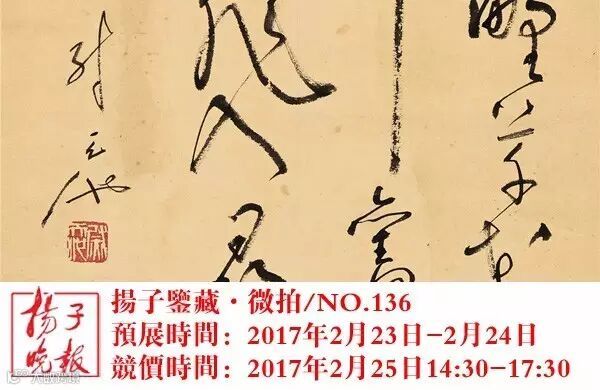 野草花
舊
飛入尋
尉天池
揚子晚報
揚子鑒藏·微拍/NO.136
預展時間：2017年2月23日-2月24日
競價時間：2017年2月25日14:30-17:30